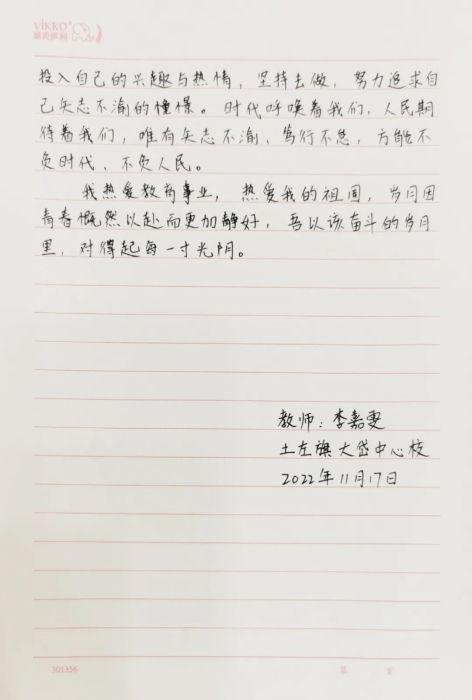 VIKKO
投入自己的兴趣与热情，坚持去做，努力追求自
己矢志不渝的憧憬。时代呼唤着我们，人民期
待着我们，唯有矢志不渝、笃行不怠，方能不
负时代、不负人民。
我热爱教育事业，热爱我的祖国，岁月因
青春慨然以赴而更加静好，吾以该奋斗的岁月
里，对得起每一寸光阴。
教师：李嘉雯
土左旗大岱中心校
2022年11月17日
101356
第 页